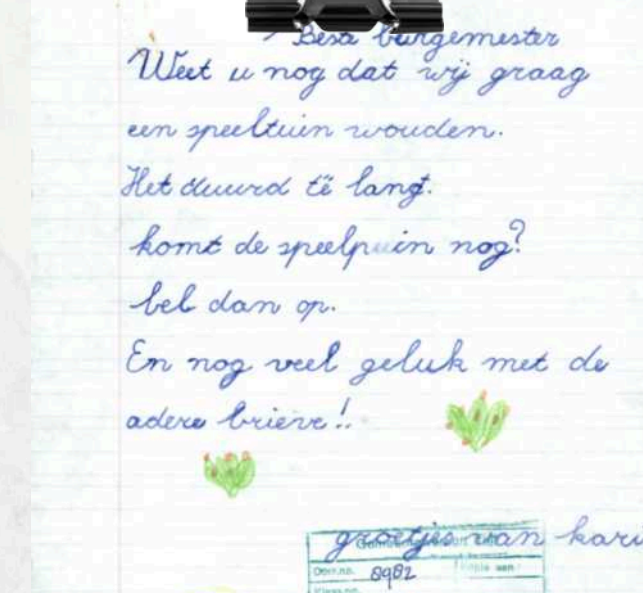 Beste burgemester
Weet u nog dat wij graag
een speeltuin wouden.
Het duurd të lang.
komt de speelpuin nog?
bel dan op.
En nog veel geluk met de
adere brieve!.
groetjes van kari
8982